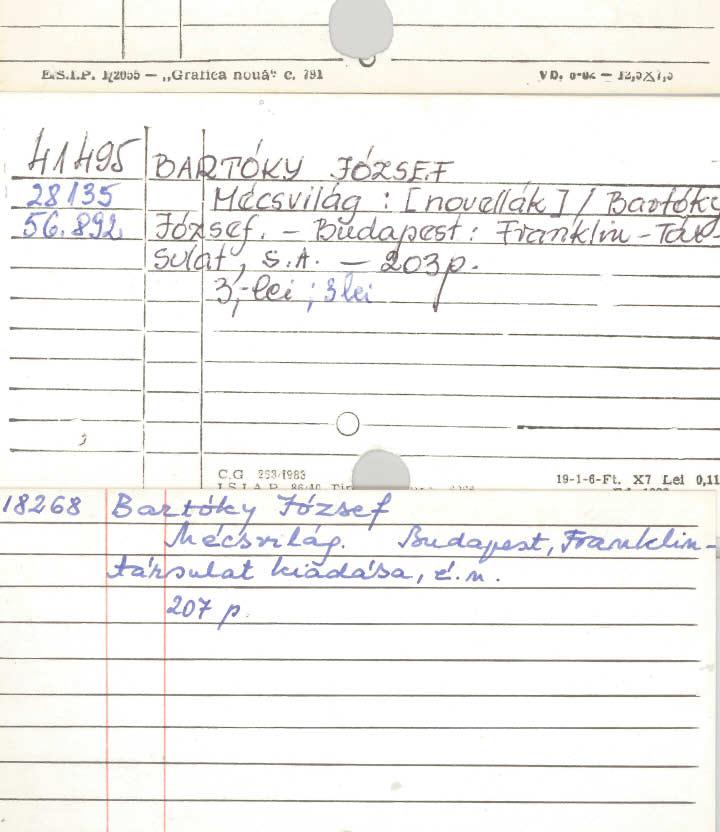 E.S.I.P. — „Grafica nouă" c. 791
41495 BARTÓKY JÓZSEF
28135 Mécsvilág : [novellák] / Bartóky
56.892 József. – Budapest : Franklin-Tár-
sulat, S.A. – 203 p.
3,- lei ; 3 lei
C.G 293/1983
19-1-6-Ft. X7 Lei 0,11
18268 Bartóky József
Mécsvilág. Budapest, Franklin-
társulat kiadása, é.n.
207 p.